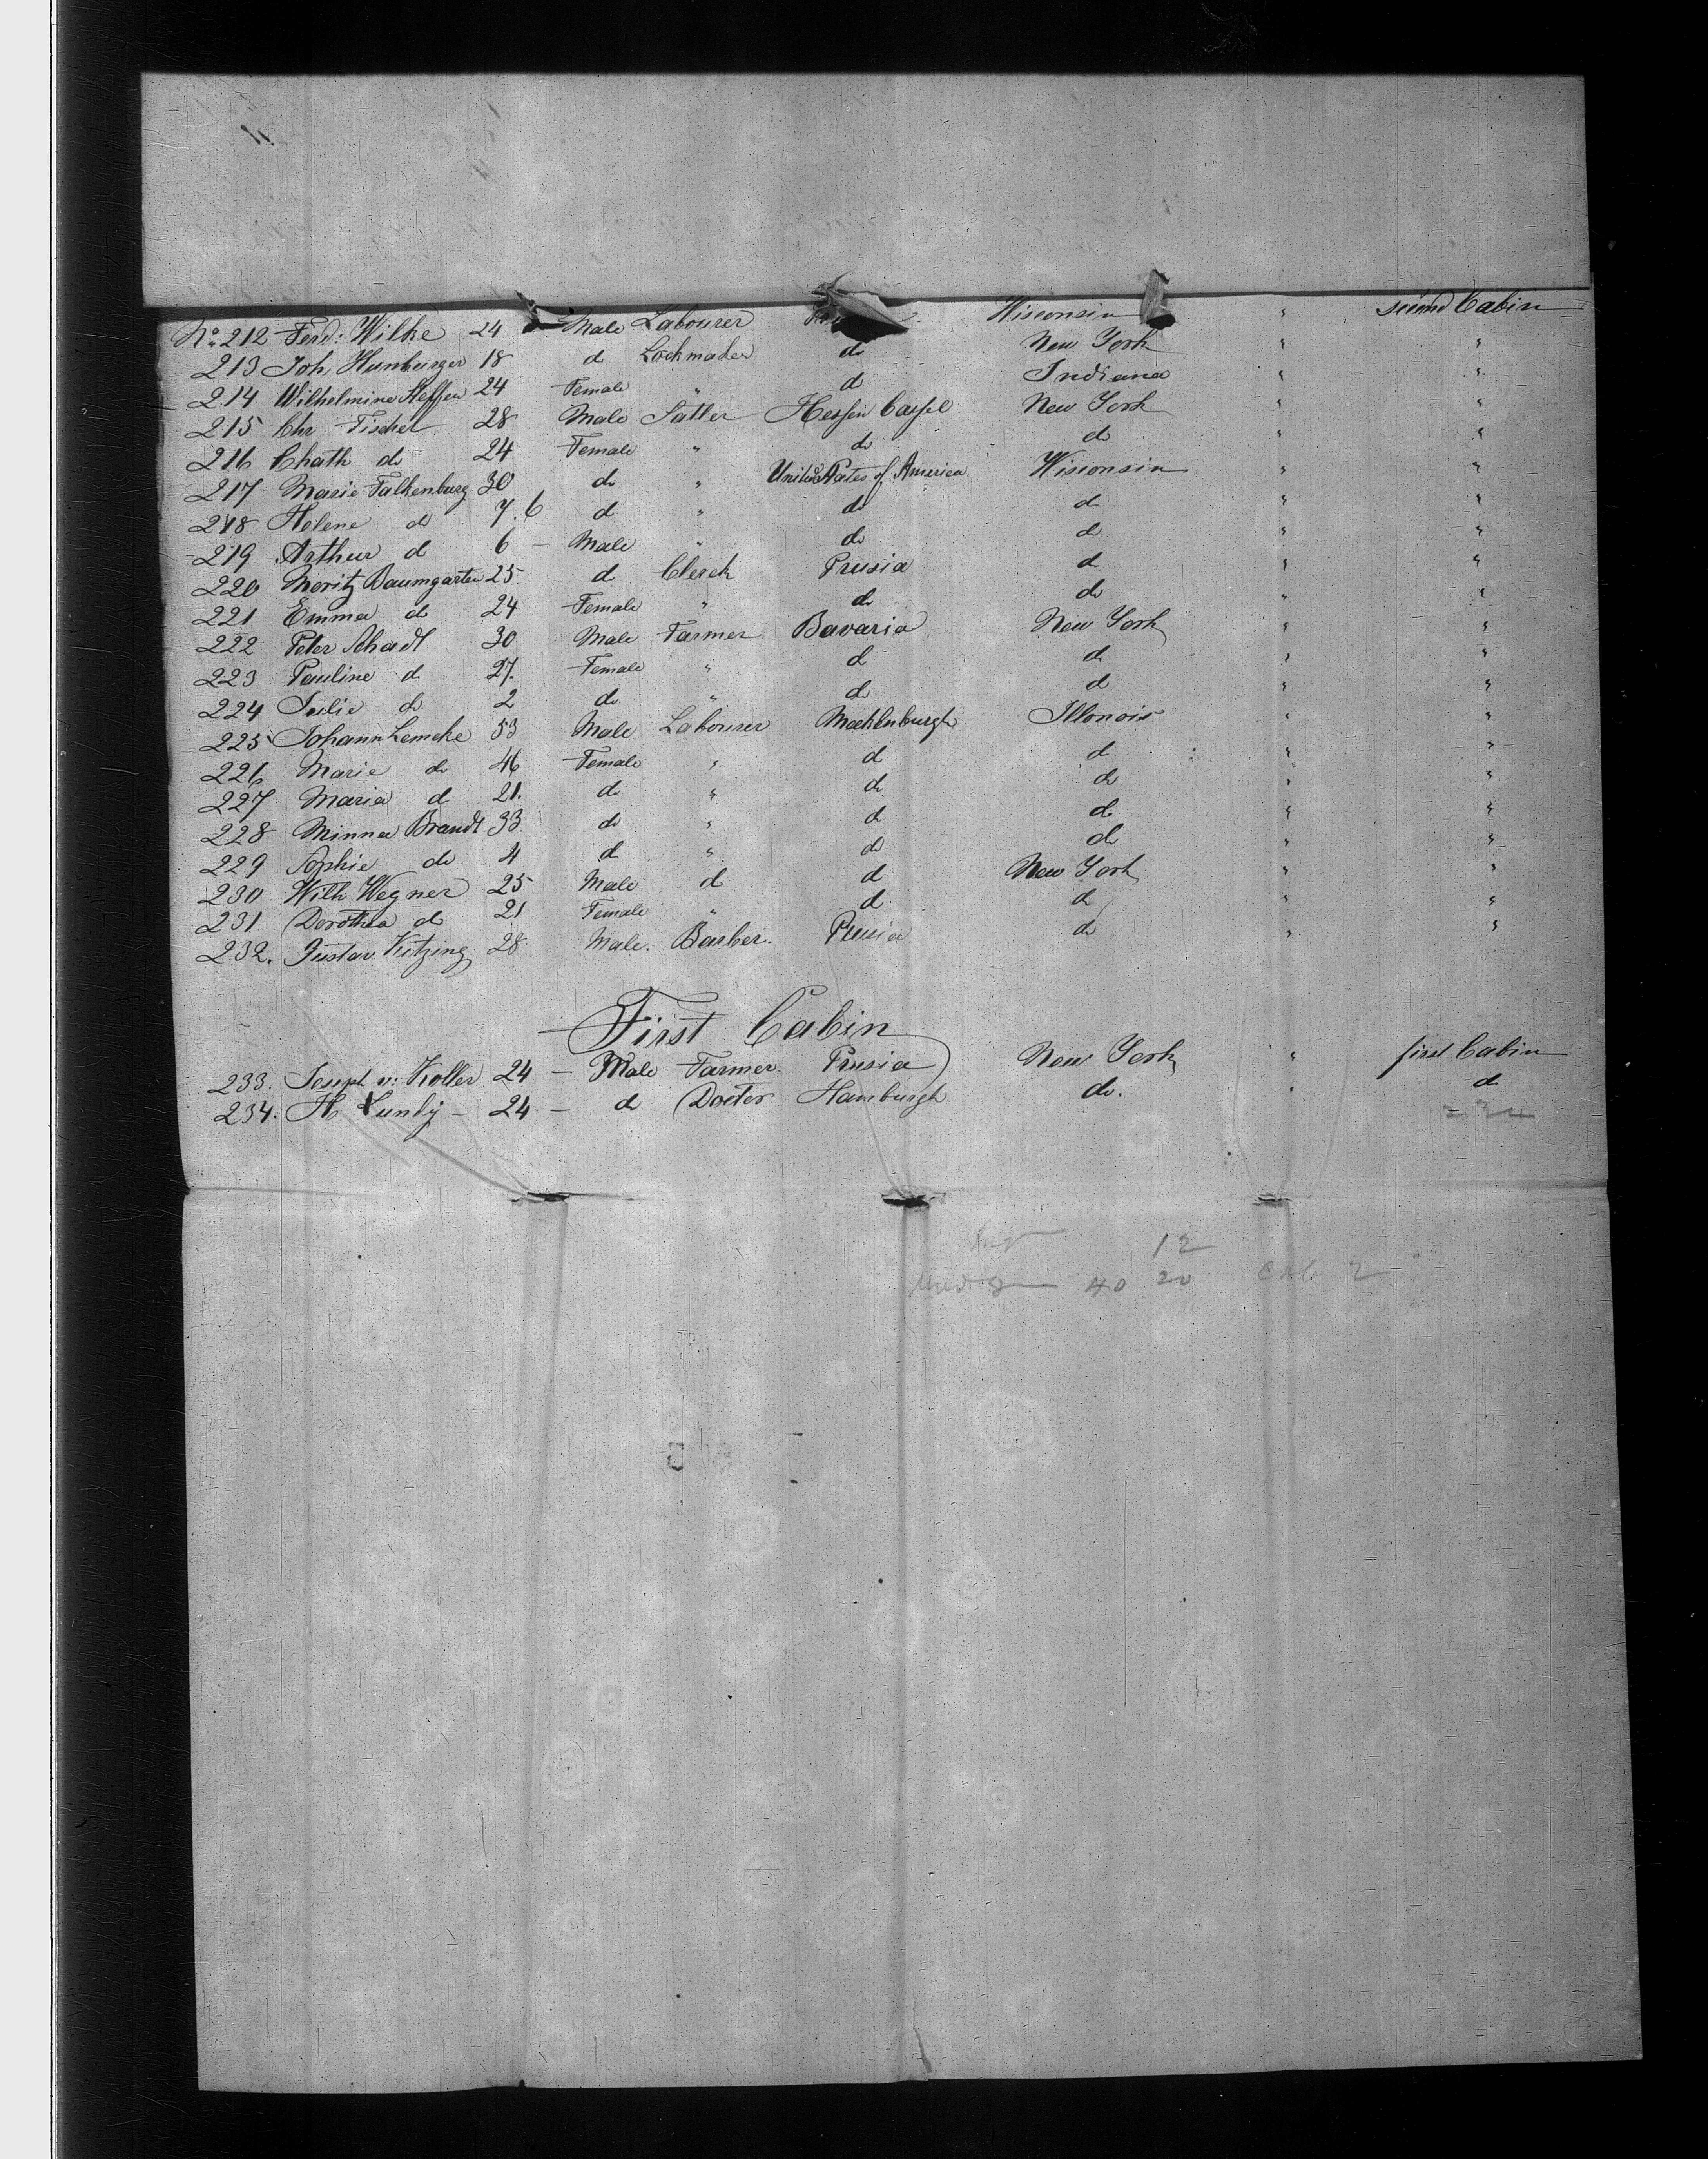 No. 212 Ferd: Wilke 24 Male Labourer Wisconsin " second Cabin
213 Joh. Hunburger 18 d Lockmaker do New York " "
214 Wilhelmine Steffen 24 Female " d Indiana " "
215 Chr Fischer 28 Male Sattler Hessen Cassel New York " "
216 Chath do 24 Female " do do " "
217 Marie Falkenburg 30 do " United States of America Wisconsin " "
218 Helene d 7.6 d " do d " "
219 Arthur d 6 - Male " do d " "
220 Moritz Baumgarten 25 d Clerck Prusia d " "
221 Emma d 24 Female " do do " "
222 Peter Schadt 30 Male Farmer Bavaria New York " "
223 Pauline d 27. Female " d d " "
224 Julie do 2 do " d d " "
225 Johann Lemcke 53 Male Labourer Mecklenburgh Illonois " "
226 Marie do 46 Female " d d " "
227 Maria d 21. do " d do " "
228 Minna Brandt 33. do " d do " "
229 Sophie do 4 d " do do " "
230 Wilh Wegner 25 Male d d New York " "
231 Dorothea d 21 Female " d d " "
232. Gustav Kitzing 28 Male. Barber. Prusia do " "
First Cabin
233. Joseph v: Koller 24 - Male Farmer. Prusia New York " first Cabin
234. H. - 24 - do Docter Hamburgh do. " d
234
12
40 20 Cab 2